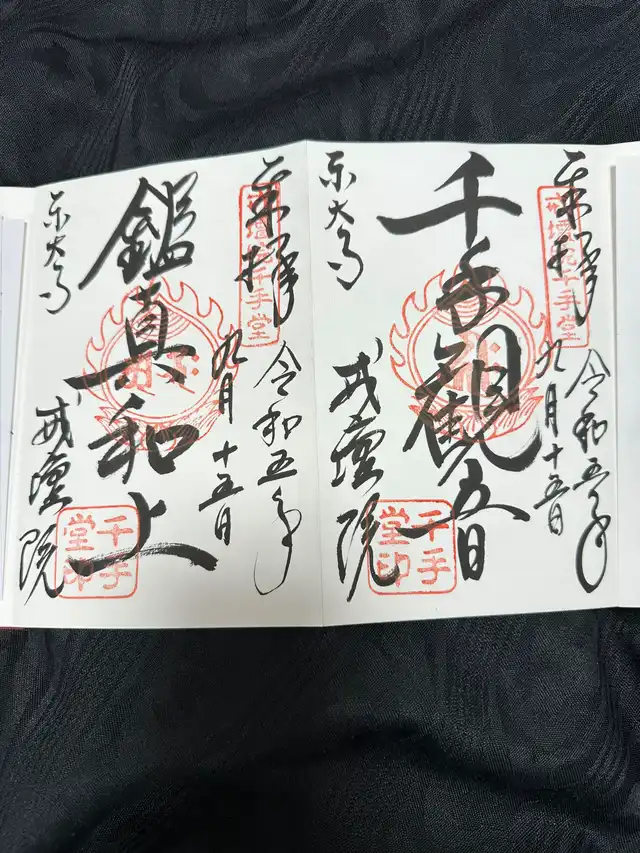 奉拝
令和五年
九月十五日
戒壇院千手堂
千手観音
東大寺
戒壇院
千手堂印
奉拝
令和五年
九月十五日
戒壇院千手堂
鑑真和上
東大寺
戒壇院
千手堂印